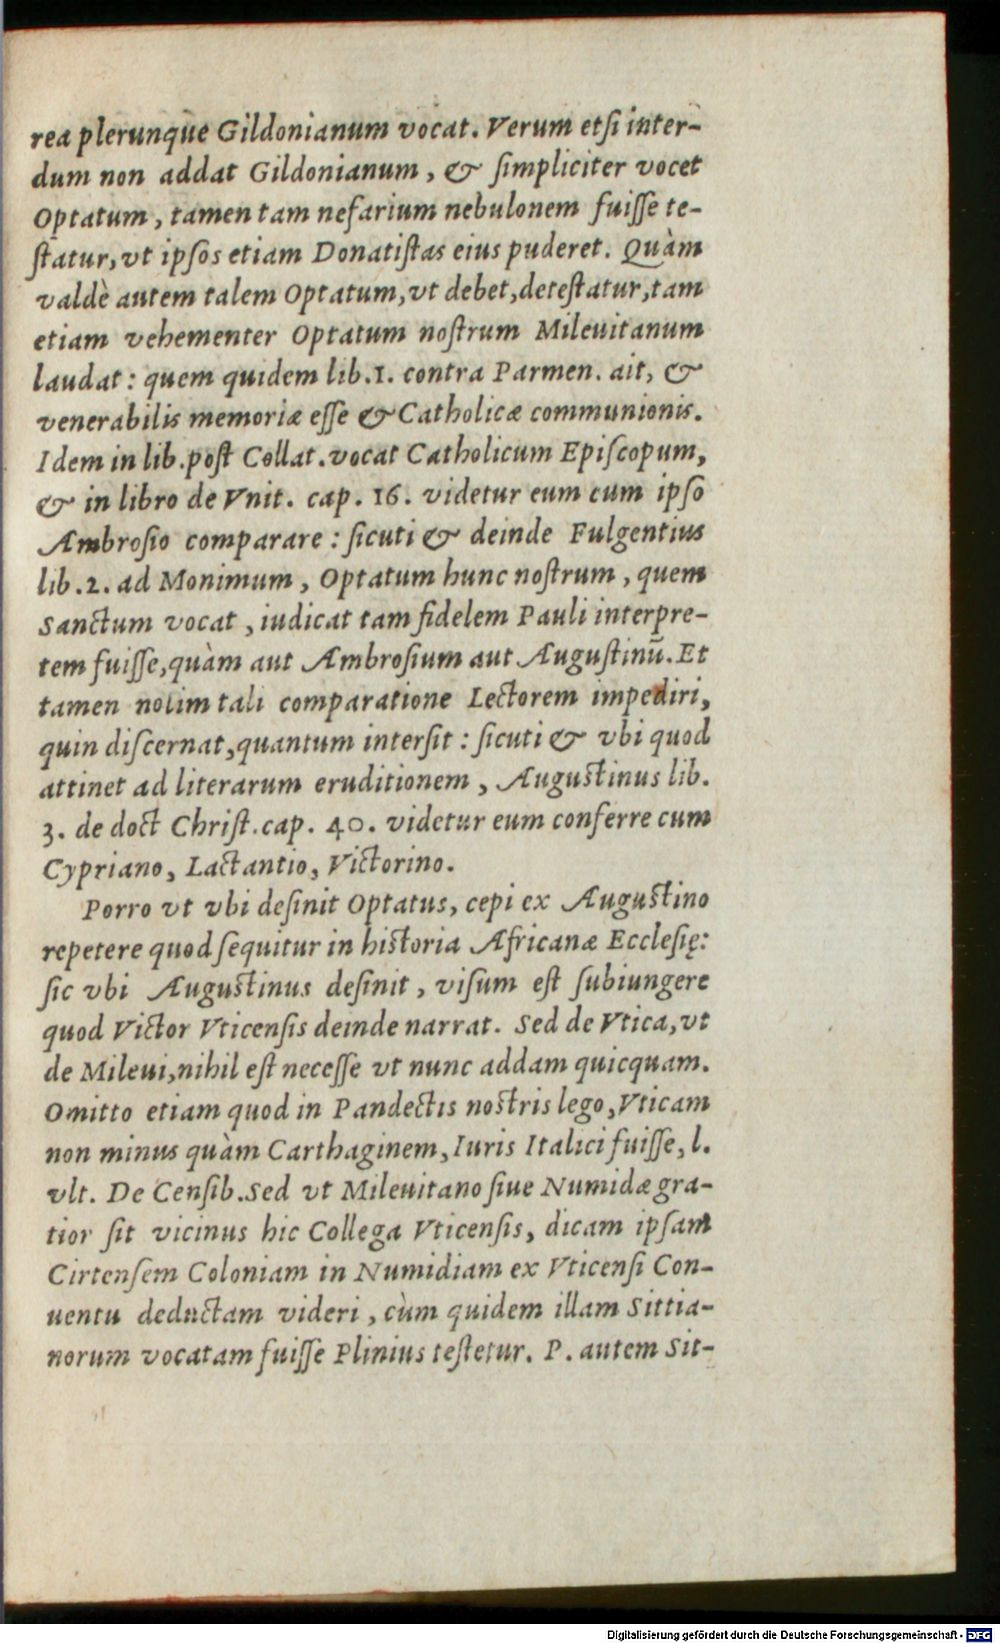 rea plerunque Gildonianum vocat. Verum etſi inter-
dum non addat Gildonianum, & ſimpliciter vocet
Optatum, tamen tam nefarium nebulonem fuiſſe te-
ſtatur, vt ipſos etiam Donatiſtas eius puderet. Quàm
valdè autem talem Optatum, vt debet, deteſtatur, tam
etiam vehementer Optatum noſtrum Mileuitanum
laudat: quem quidem lib. 1. contra Parmen. ait, &
venerabilis memoriæ eſſe & Catholicæ communionis.
Idem in lib. poſt Collat. vocat Catholicum Epiſcopum,
& in libro de Vnit. cap. 16. videtur eum cum ipſo
Ambroſio comparare: ſicuti & deinde Fulgentius
lib. 2. ad Monimum, Optatum hunc noſtrum, quem
Sanctum vocat, iudicat tam fidelem Pauli interpre-
tem fuiſſe, quàm aut Ambroſium aut Auguſtinū. Et
tamen nolim tali comparatione Lectorem impediri,
quin diſcernat, quantum interſit: ſicuti & vbi quod
attinet ad literarum eruditionem, Auguſtinus lib.
3. de doct Chriſt. cap. 40. videtur eum conferre cum
Cypriano, Lactantio, Victorino.
Porro vt vbi deſinit Optatus, cepi ex Auguſtino
repetere quod ſequitur in hiſtoria Africanæ Eccleſię:
ſic vbi Auguſtinus deſinit, viſum eſt ſubiungere
quod Victor Vticenſis deinde narrat. Sed de Vtica, vt
de Mileui, nihil eſt neceſſe vt nunc addam quicquam.
Omitto etiam quod in Pandectis noſtris lego, Vticam
non minus quàm Carthaginem, Iuris Italici fuiſſe, l.
vlt. De Cenſib. Sed vt Mileuitano ſiue Numidæ gra-
tior ſit vicinus hic Collega Vticenſis, dicam ipſam
Cirtenſem Coloniam in Numidiam ex Vticenſi Con-
uentu deductam videri, cùm quidem illam Sittia-
norum vocatam fuiſſe Plinius teſtetur. P. autem Sit-
Digitalisierung gefördert durch die Deutsche Forschungsgemeinschaft - DFG